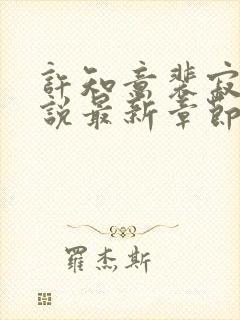 許知意裴寂
說最新章節
羅杰斯